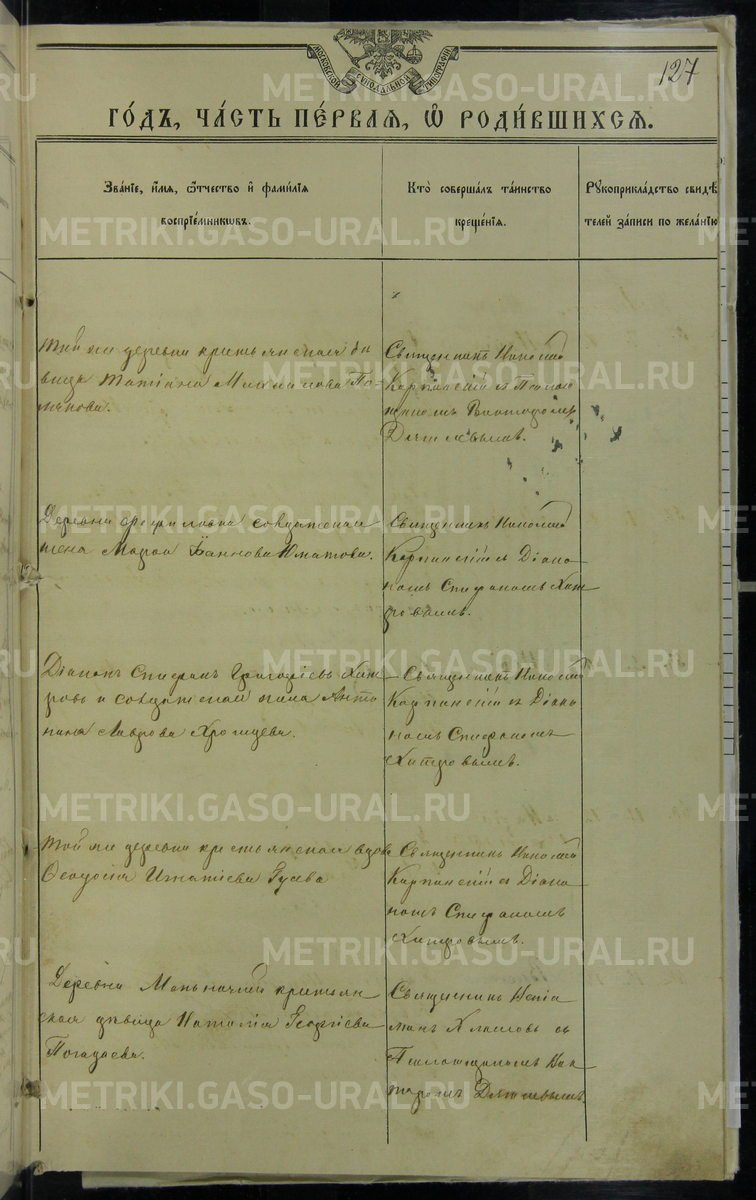 МОСКОВСКОЙ СѴНОДАЛЬНОЙ ТИПОГРАФІИ
127
ГО́ДЪ, ЧА́СТЬ ПЕ́РВАЯ, Ѽ РОДИ́ВШИХСЯ.
Зва́нїе, и҆́мя, ѻ҆́тчество и҆ фами́лїя
воспрїе́мниковъ.
Кто̀ соверша́лъ та́инство
креще́нїя.
Рꙋкоприкла́дство свидѣ́
телей за́писи по жела́нїю
Той же деревни крестьянская дѣ
вица Татіана Михаилова
Священникъ Николай
Карпинскій съ Псалом
щикомъ
Деревни солдатская
жена Марѳа
Священникъ Николай
Карпинскій съ Діако
номъ Стефаномъ Хит
ровымъ.
Діаконъ Стефанъ Григоріевъ Хит
ровъ и солдатская жена Анто
нина Лаврова
Священникъ Николай
Карпинскій съ Діако
номъ Стефаномъ
Хитровымъ.
Той же деревни крестьянская вдова
Ѳеодосія Игнатіева Гусева
Священникъ Николай
Карпинскій съ Діако
номъ Стефаномъ
Хитровымъ.
Деревни крестьян
ская дѣвица Наталія Георгіева
Погадаева.
Священникъ Веніа
минъ съ
Псаломщикомъ Вик
торомъ
METRIKI.GASO-URAL.RU